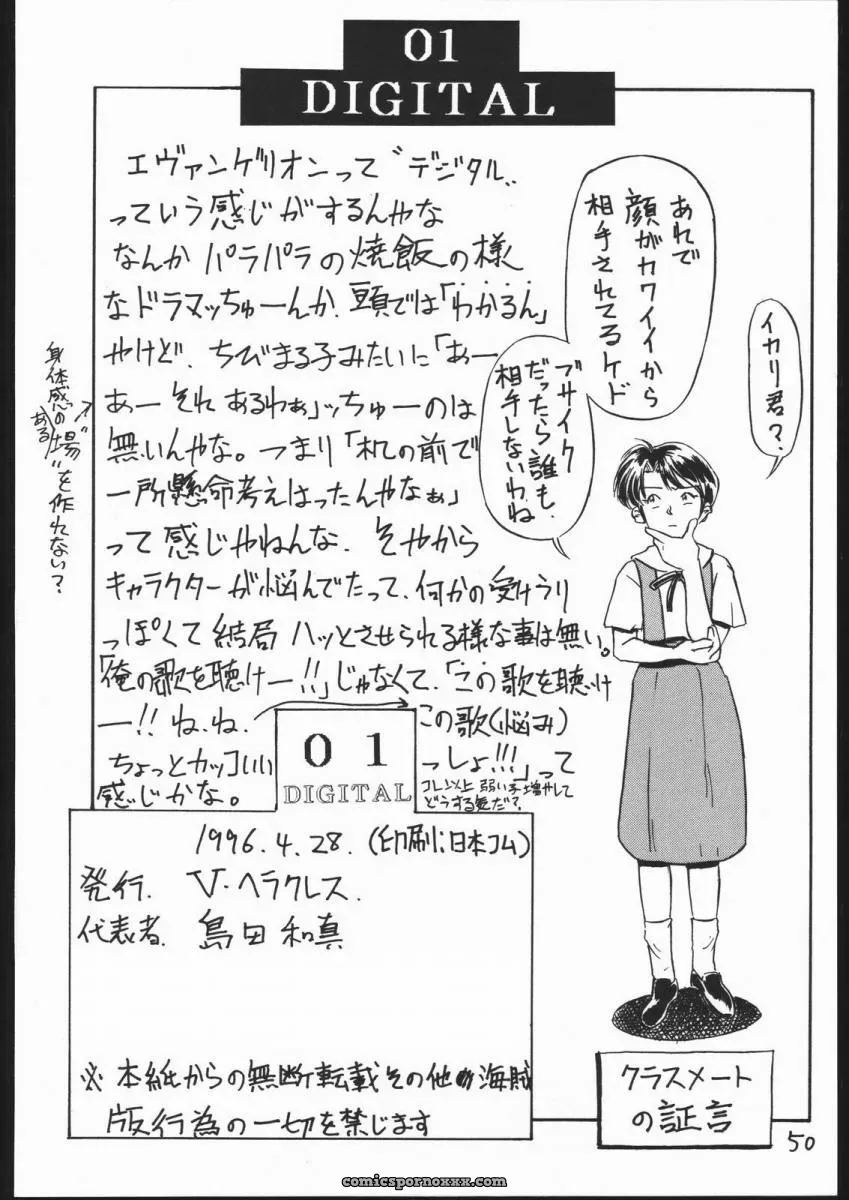 01
DIGITAL
エヴァンゲリオンって〝デジタル〟
っていう感じがするんやな
なんか パラパラの焼飯の様
なドラマッちゅーんか、頭では「わかるん」
やけど、ちびまる子みたいに「あー
あー それ あるわぁ」ッちゅーのは
無いんやな。つまり「机の前で
一所懸命考えはったんやなぁ」
って 感じやねんな、そやから
キャラクターが悩んでたって、何かの受けうり
っぽくて 結局 ハッとさせられる様な事は無い。
「俺の歌を聴けー!!」じゃなくて、「この歌を聴け
ー!! ね、ね、
この歌(悩み)
ちょっとカッコいい
っしょ!!!」って
感じかな。
コレ以上 弱い子増やして
どうする気だ?
身体感の〝場〟を作れない?
ある
イカリ君?
あれで
顔がカワイイから
相手されてるケド
ブサイク
だったら誰も
相手しないわね
01
DIGITAL
1996.4.28.(印刷;日本コム)
発行. V・ヘラクレス.
代表者. 島田和真
※ 本紙からの無断転載その他の海賊
版行為の一切を禁じます
クラスメート
の証言
50
comicspornoxxx.com